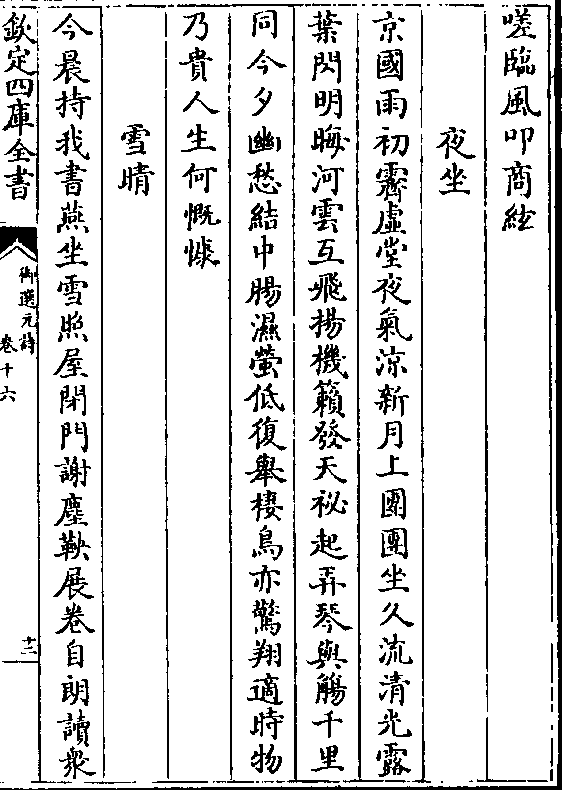 嗟臨風叩商絃
夜坐
京國雨初霽虛堂夜氣涼新月上團團坐久流清光露
葉閃明晦河雲互飛揚機籟發天祕起弄琴與觴千里
同今夕幽愁結中腸濕螢低復舉棲烏亦驚翔適時物
乃貴人生何慨慷
雪晴
今晨持我書燕坐雪照屋閉門謝塵鞅展卷自朗讀衆
欽定四庫全書
御選元詩
卷十六
十二